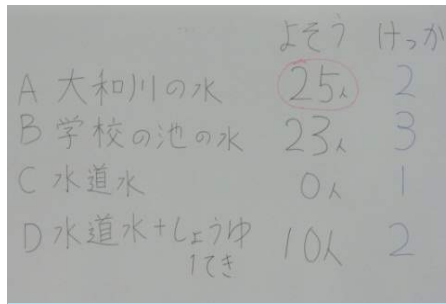 よそう けっか
A 大和川の水 25人 2
B 学校の池の水 23人 3
C 水道水 0人 1
D 水道水+しょうゆ 10人 2
1てき